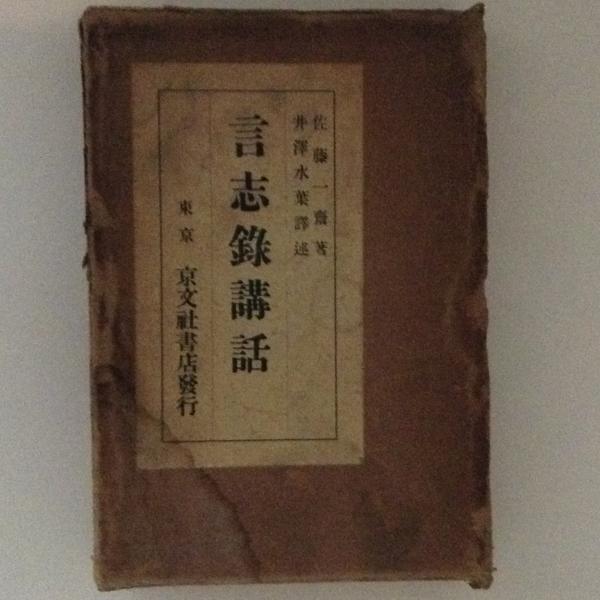 佐藤一齋著
井澤水葉譯述
言志錄講話
東京 京文社書店發行